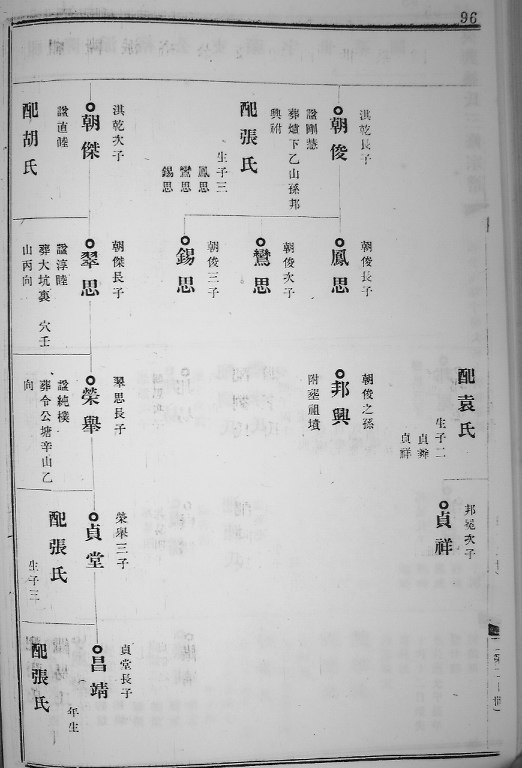 96
淇乾長子
朝俊
諡剛慧
葬爐下乙山孫邦
興祔
配張氏
生子三
鳳思
鸞思
錫思
淇乾次子
朝傑
諡直睦
配胡氏
朝俊長子
鳳思
朝俊次子
鸞思
朝俊三子
錫思
朝傑長子
翠思
諡淳睦
葬大坑裏 穴壬
山丙向
配袁氏
生子二
貞祥
朝俊之孫
邦興
附塟祖墳
翠思長子
榮舉
諡純樸
葬令公塘辛山乙
向
次子
貞祥
榮舉三子
貞堂
配張氏
生子三
貞堂長子
昌靖
年生
配張氏